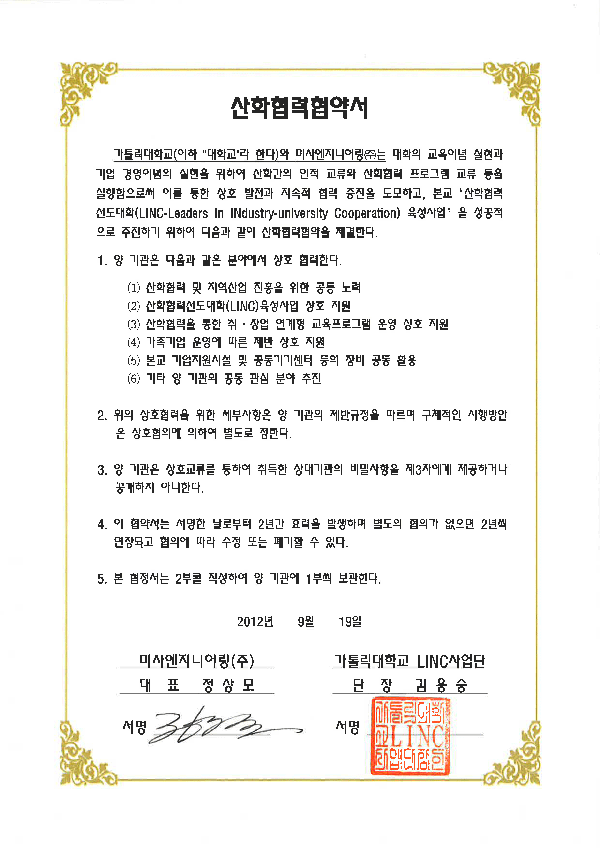 산학협력협약서
가톨릭대학교(이하 "대학교"라 한다)와 미사엔지니어링㈜는 대학의 교육이념 실현과
기업 경영이념의 실현을 위하여 산학간의 인적 교류와 산학협력 프로그램 교류 등을
실행함으로써 이를 통한 상호 발전과 지속적 협력 증진을 도모하고, 본교 '산학협력
선도대학(LINC-Leaders in INdustry-university Cooperation) 육성사업' 을 성공적
으로 추진하기 위하여 다음과 같이 산학협력협약을 체결한다.
1. 양 기관은 다음과 같은 분야에서 상호 협력한다.
(1) 산학협력 및 지역산업 진흥을 위한 공동 노력
(2) 산학협력선도대학(LINC)육성사업 상호 지원
(3) 산학협력을 통한 취ㆍ창업 연계형 교육프로그램 운영 상호 지원
(4) 가족기업 운영에 따른 제반 상호 지원
(5) 본교 기업지원시설 및 공동기기센터 등의 장비 공동 활용
(6) 기타 양 기관의 공동 관심 분야 추진
2. 위의 상호협력을 위한 세부사항은 양 기관의 제반규정을 따르며 구체적인 시행방안
은 상호협의에 의하여 별도로 정한다.
3. 양 기관은 상호교류를 통하여 취득한 상대기관의 비밀사항을 제3자에게 제공하거나
공개하지 아니한다.
4. 이 협약서는 서명한 날로부터 2년간 효력을 발생하며 별도의 협의가 없으면 2년씩
연장되고 협의에 따라 수정 또는 폐기할 수 있다.
5. 본 협정서는 2부를 작성하여 양 기관에 1부씩 보관한다.
2012년 9월 19일
미사엔지니어링(주) 가톨릭대학교 LINC사업단
대 표 정상모 단 장 김용승
서명 서명
가톨릭대학
교LINC
사업단장인